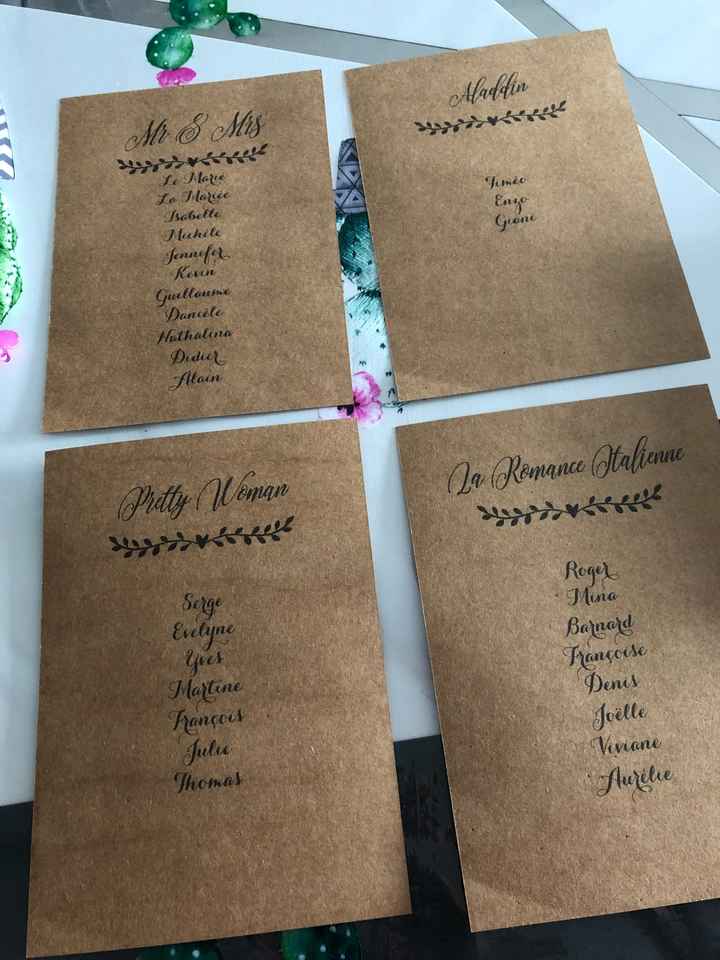 Mr & Mrs
Le Marié
La Mariée
Isabelle
Michèle
Jennifer
Kevin
Guillaume
Danièle
Nathalina
Didier
Alain
Aladdin
Timéo
Enzo
Gioni
Pretty Woman
Serge
Evelyne
Yves
Martine
François
Julie
Thomas
La Romance Italienne
Roger
Mina
Barnard
Françoise
Denis
Joëlle
Viviane
Aurélie